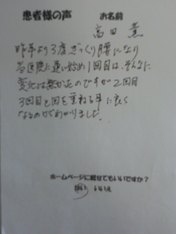 患者様の声 お名前
高田 薫
昨年より3度ぎっくり腰になり
当医院に通い始め1回目は、そんなに
変化は無かったのですが2回目
3回目と回を重ねる毎に良く
なるのがわかりました。
ホームページに載せてもいいですか?
はい